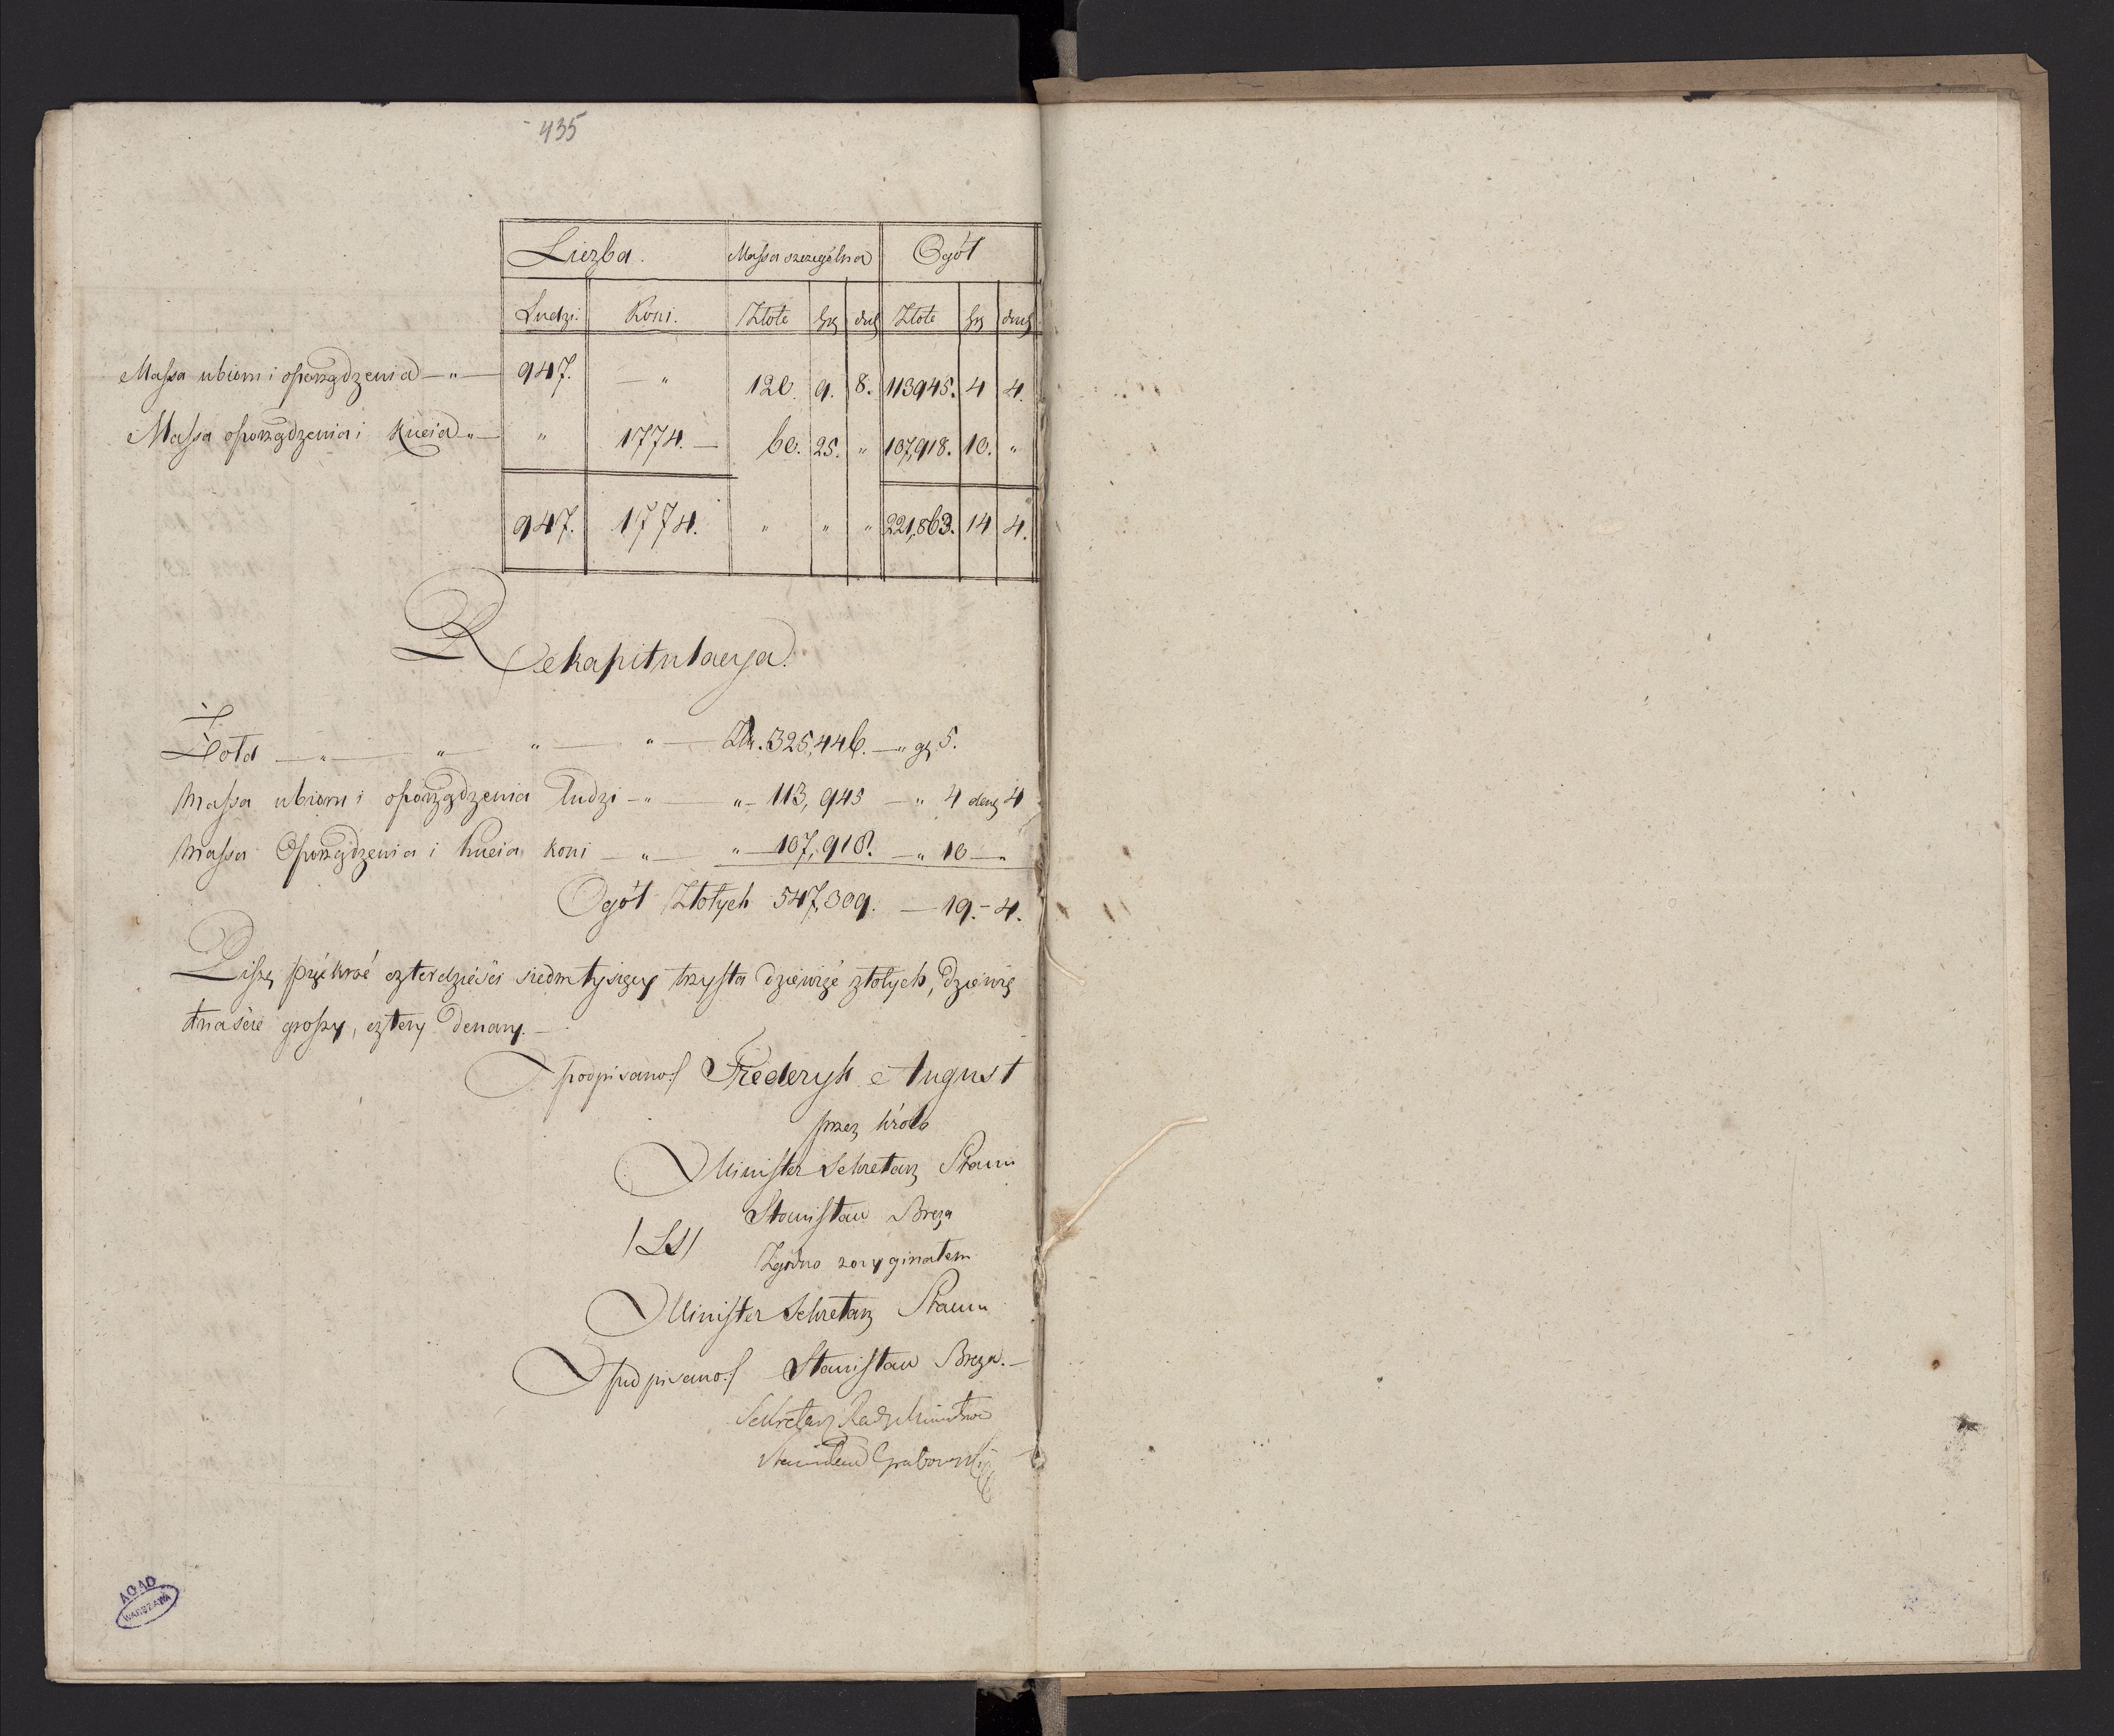 435
Liczba. Massa szczególna Ogół
Ludzi. Koni. Złote gr den Złote gr den
Massa ubioru i oporządzenia — " — 947. — " 120. 9. 8. 113945. 4 4.
Massa oporządzenia i kucia " — " 1774. — 60. 25. " 107,918. 10. "
947. 1774. " " " 221,863. 14 4.
Rekapitulacyja.
Żołd — " — " — " — " — Zł. 325,446. — " gr 5.
Massa ubioru i oporządzenia ludzi — " — " — 113,945 — " 4 den 4
Massa Oporządzenia i kucia koni — " — " — 107,918. — " 10 — "
Ogół Złotych 547,309. — 19. – 4.
Piszę pięćkroć czterdzieści siedm tysięcy trzysta dziewięć złotych, dziewię
tnaście groszy, cztery denary. —
podpisano Fréderyk August
przez króla
Minister Sekretarz Stanu
Stanisław Breza
/LS/ Zgodno z oryginałem
Minister Sekretarz Stanu
podpisano Stanisław Breza. —
Sekretarz Rady Ministrów
Stanisław Grabowski
AGAD
WARSZAWA